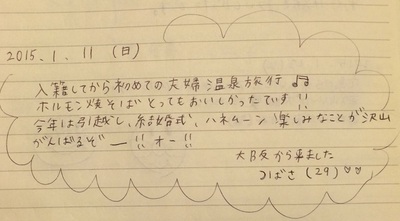 2015.1.11(日)
入籍してから初めての夫婦温泉旅行♫
ホルモン焼そばとってもおいしかったです!!
今年は引越し、結婚式、ハネムーン!楽しみなことが沢山
がんばるぞー!!オー!!
大阪から来ました
つばさ(29)♡♡